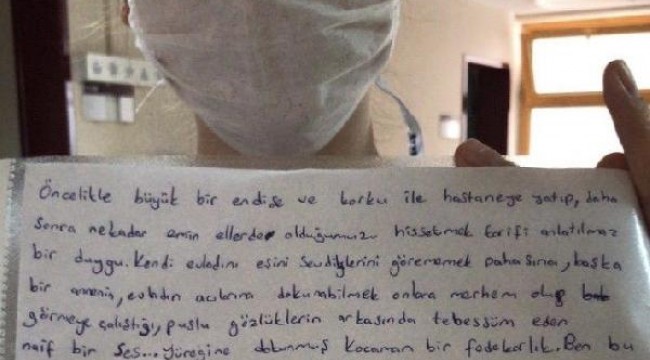 Öncelikle büyük bir endişe ve korku ile hastaneye yatıp, daha
sonra nekadar emin ellerde olduğumuzu hissetmek tarifi anlatılmaz
bir duygu. Kendi evladını eşini sevdiklerini görememek pahasına, başka
bir annenin, evladın acılarına dokunabilmek onlara merhem olup
görmeye çalıştığı, puslu gözlüklerin arkasında tebessüm eden
naif bir ses... yüreğine dokunmuş kocaman bir fedakarlık. Ben bu